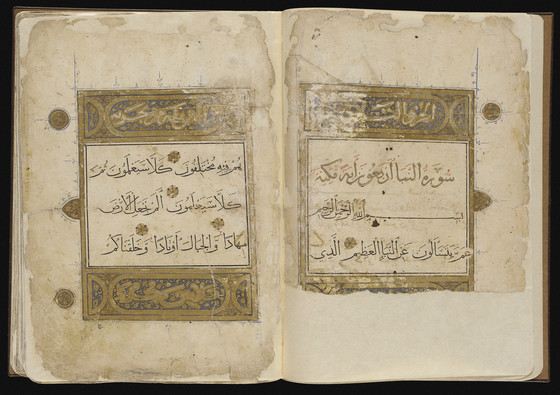 سورة النبأ اربعون اية مكية
بسم الله الرحمن الرحيم
عم يتسألون عن النبإ العظيم الذي
هم فيه مختلفون كلا سيعلمون ثم
كلا سيعلمون ألم نجعل الأرض
مهادا والجبال أوتادا وخلقناكم